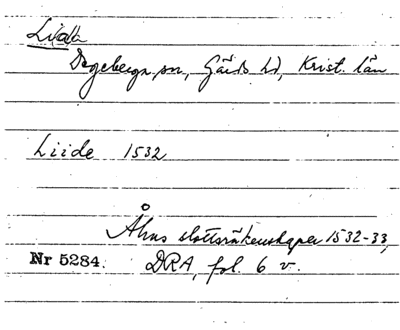 Lida
Degeberga sn, Gärds hd, Krist. län
Liide 1532
Åhus slottsräkenskaper 1532-33,
Nr 5284. DRA, fol. 6 v.